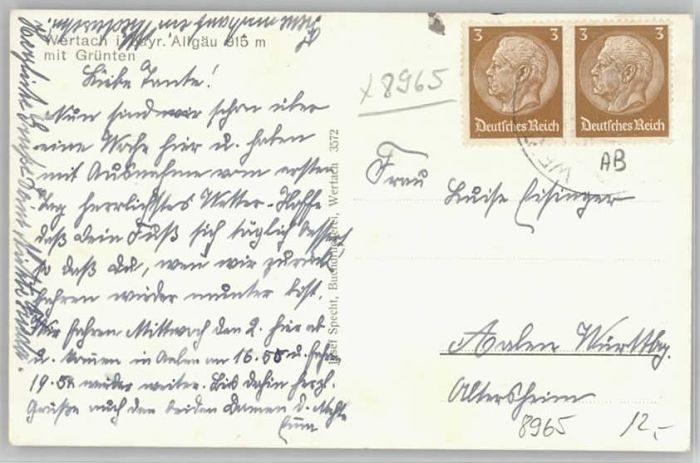 Wertach i. bayr. Allgäu 915 m
mit Grünten
Liebe Tante!
Nun sind wir schon über
eine Woche hier u. haben
mit Ausnahme vom ersten
Tag herrlichstes Wetter. Hoffe
daß Dein Fuß sich täglich bessert
so daß Du, wenn wir zurück
fahren wieder munter bist.
Wir fahren Mittwoch den 2. hier ab
u. kommen in Aalen an 16.55 u. fahren
19.52 wieder weiter. Bis dahin herzl.
Grüße auch den beiden Damen d. Nichte
Herzliche Grüße
Josef Specht, Buchbinderei, Wertach 3572
x8965
3 3
Deutsches Reich Deutsches Reich
WE
AB
Frau Luise Eisinger
Aalen Württbg.
Altersheim
8965
12,-